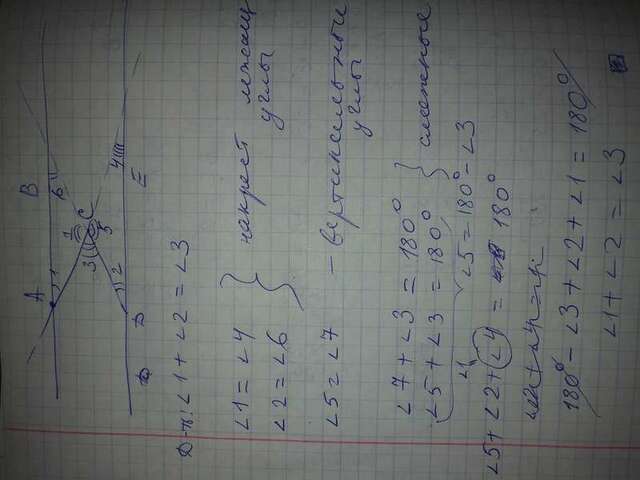 A B
1 6
7
3 C
5
2 4
D E
Д-ть: ∠1 + ∠2 = ∠3
∠1 = ∠4
∠2 = ∠6
накрест лежащ
углы
∠5 = ∠7 – вертикальные
углы
∠7 + ∠3 = 180°
∠5 + ∠3 = 180°
смежные
∠5 = 180° - ∠3
∠1
∠5 + ∠2 + ∠4 = 180°
180° - ∠3 + ∠2 + ∠1 = 180°
∠1 + ∠2 = ∠3